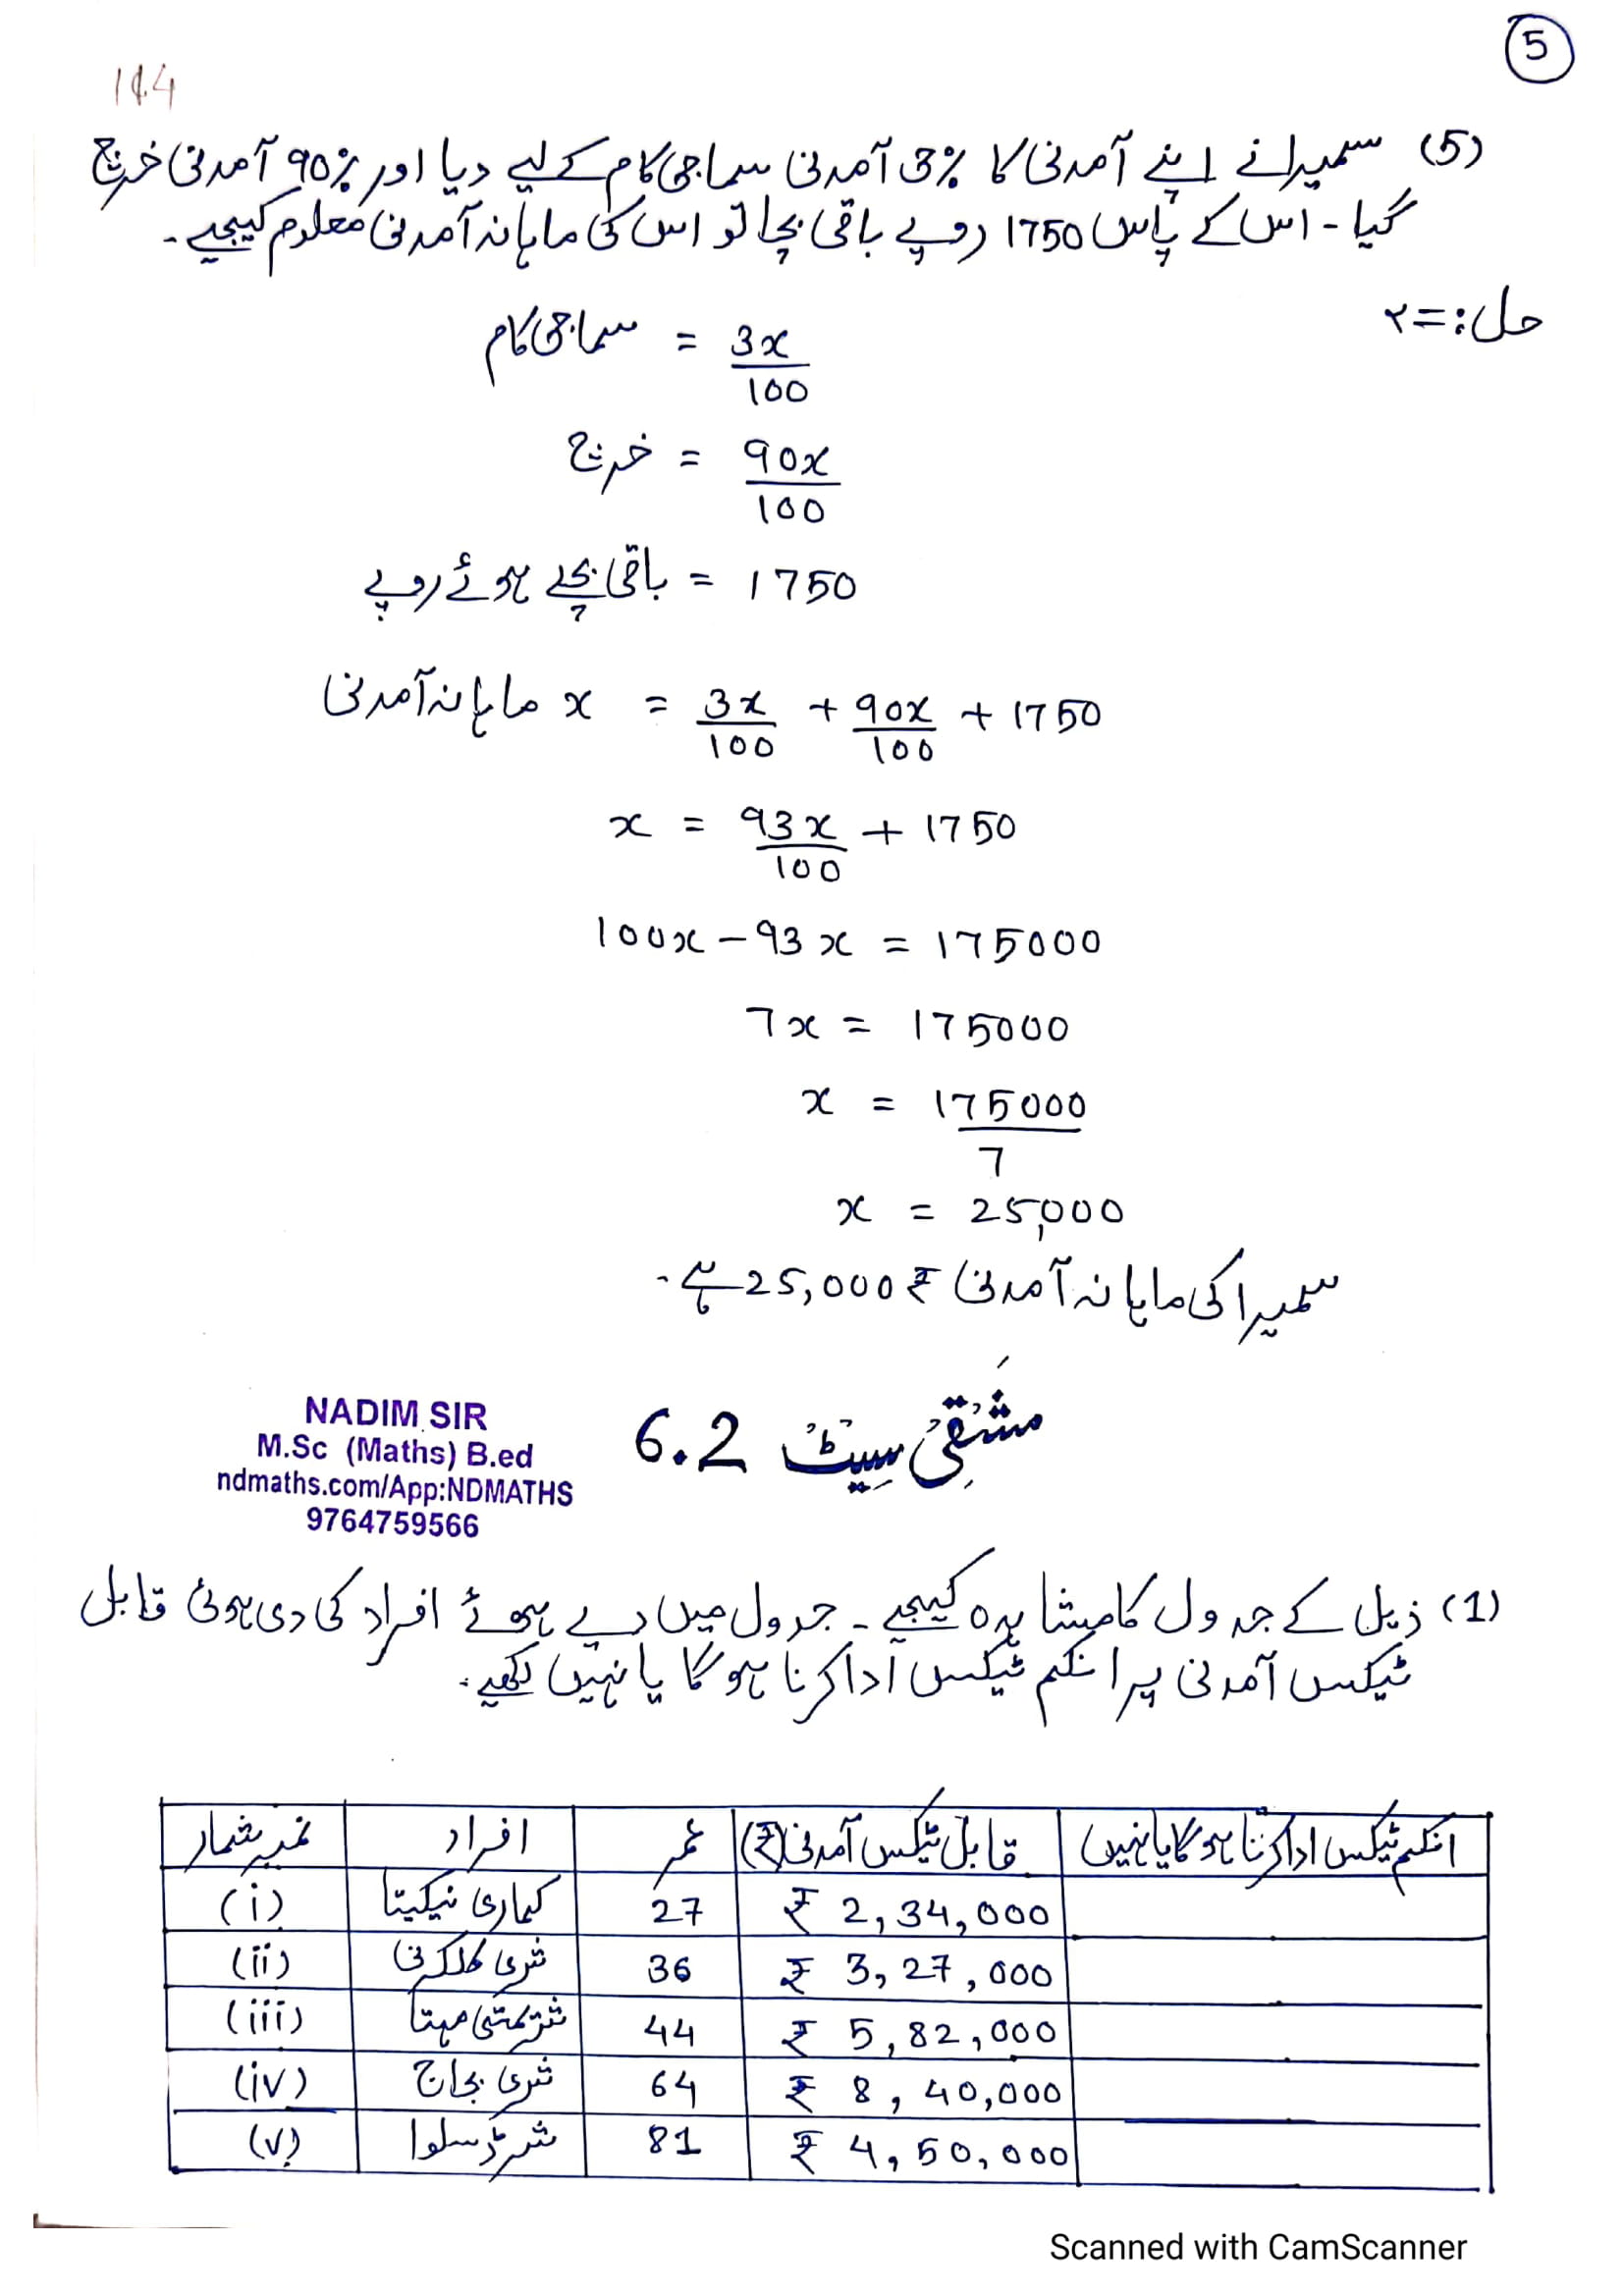 5
114
(5) سمیرا نے اپنے آمدنی کا 3% آمدنی سماجی کام کے لیے دیا اور 90% آمدنی خرچ
کیا - اس کے پاس 1750 روپے باقی بچا تو اس کی ماہانہ آمدنی معلوم کیجیے -
حل :=
سماجی کام = 3x/100
خرچ = 90x/100
باقی بچے ہوئے روپے = 1750
ماہانہ آمدنی x = 3x/100 + 90x/100 + 1750
x = 93x/100 + 1750
100x - 93x = 175000
7x = 175000
x = 175000/7
x = 25,000
سمیرا کی ماہانہ آمدنی ₹ 25,000 ہے -
NADIM SIR
M.Sc (Maths) B.ed
ndmaths.com/App:NDMATHS
9764759566
مشقی سیٹ 6.2
(1) ذیل کے جدول کا مشاہدہ کیجیے - جدول میں دیے ہوئے افراد کی دی ہوئی قابل
ٹیکس آمدنی پر انکم ٹیکس ادا کرنا ہوگا یا نہیں لکھیے -
نمبر شمار افراد عمر قابل ٹیکس آمدنی (₹) انکم ٹیکس ادا کرنا ہوگا یا نہیں
(i) کماری نیکیتا 27 ₹ 2,34,000
(ii) شری کلکرنی 36 ₹ 3,27,000
(iii) شریمتی مہتا 44 ₹ 5,82,000
(iv) شری بجاج 64 ₹ 8,40,000
(v) ڈسلوا 81 ₹ 4,50,000
Scanned with CamScanner